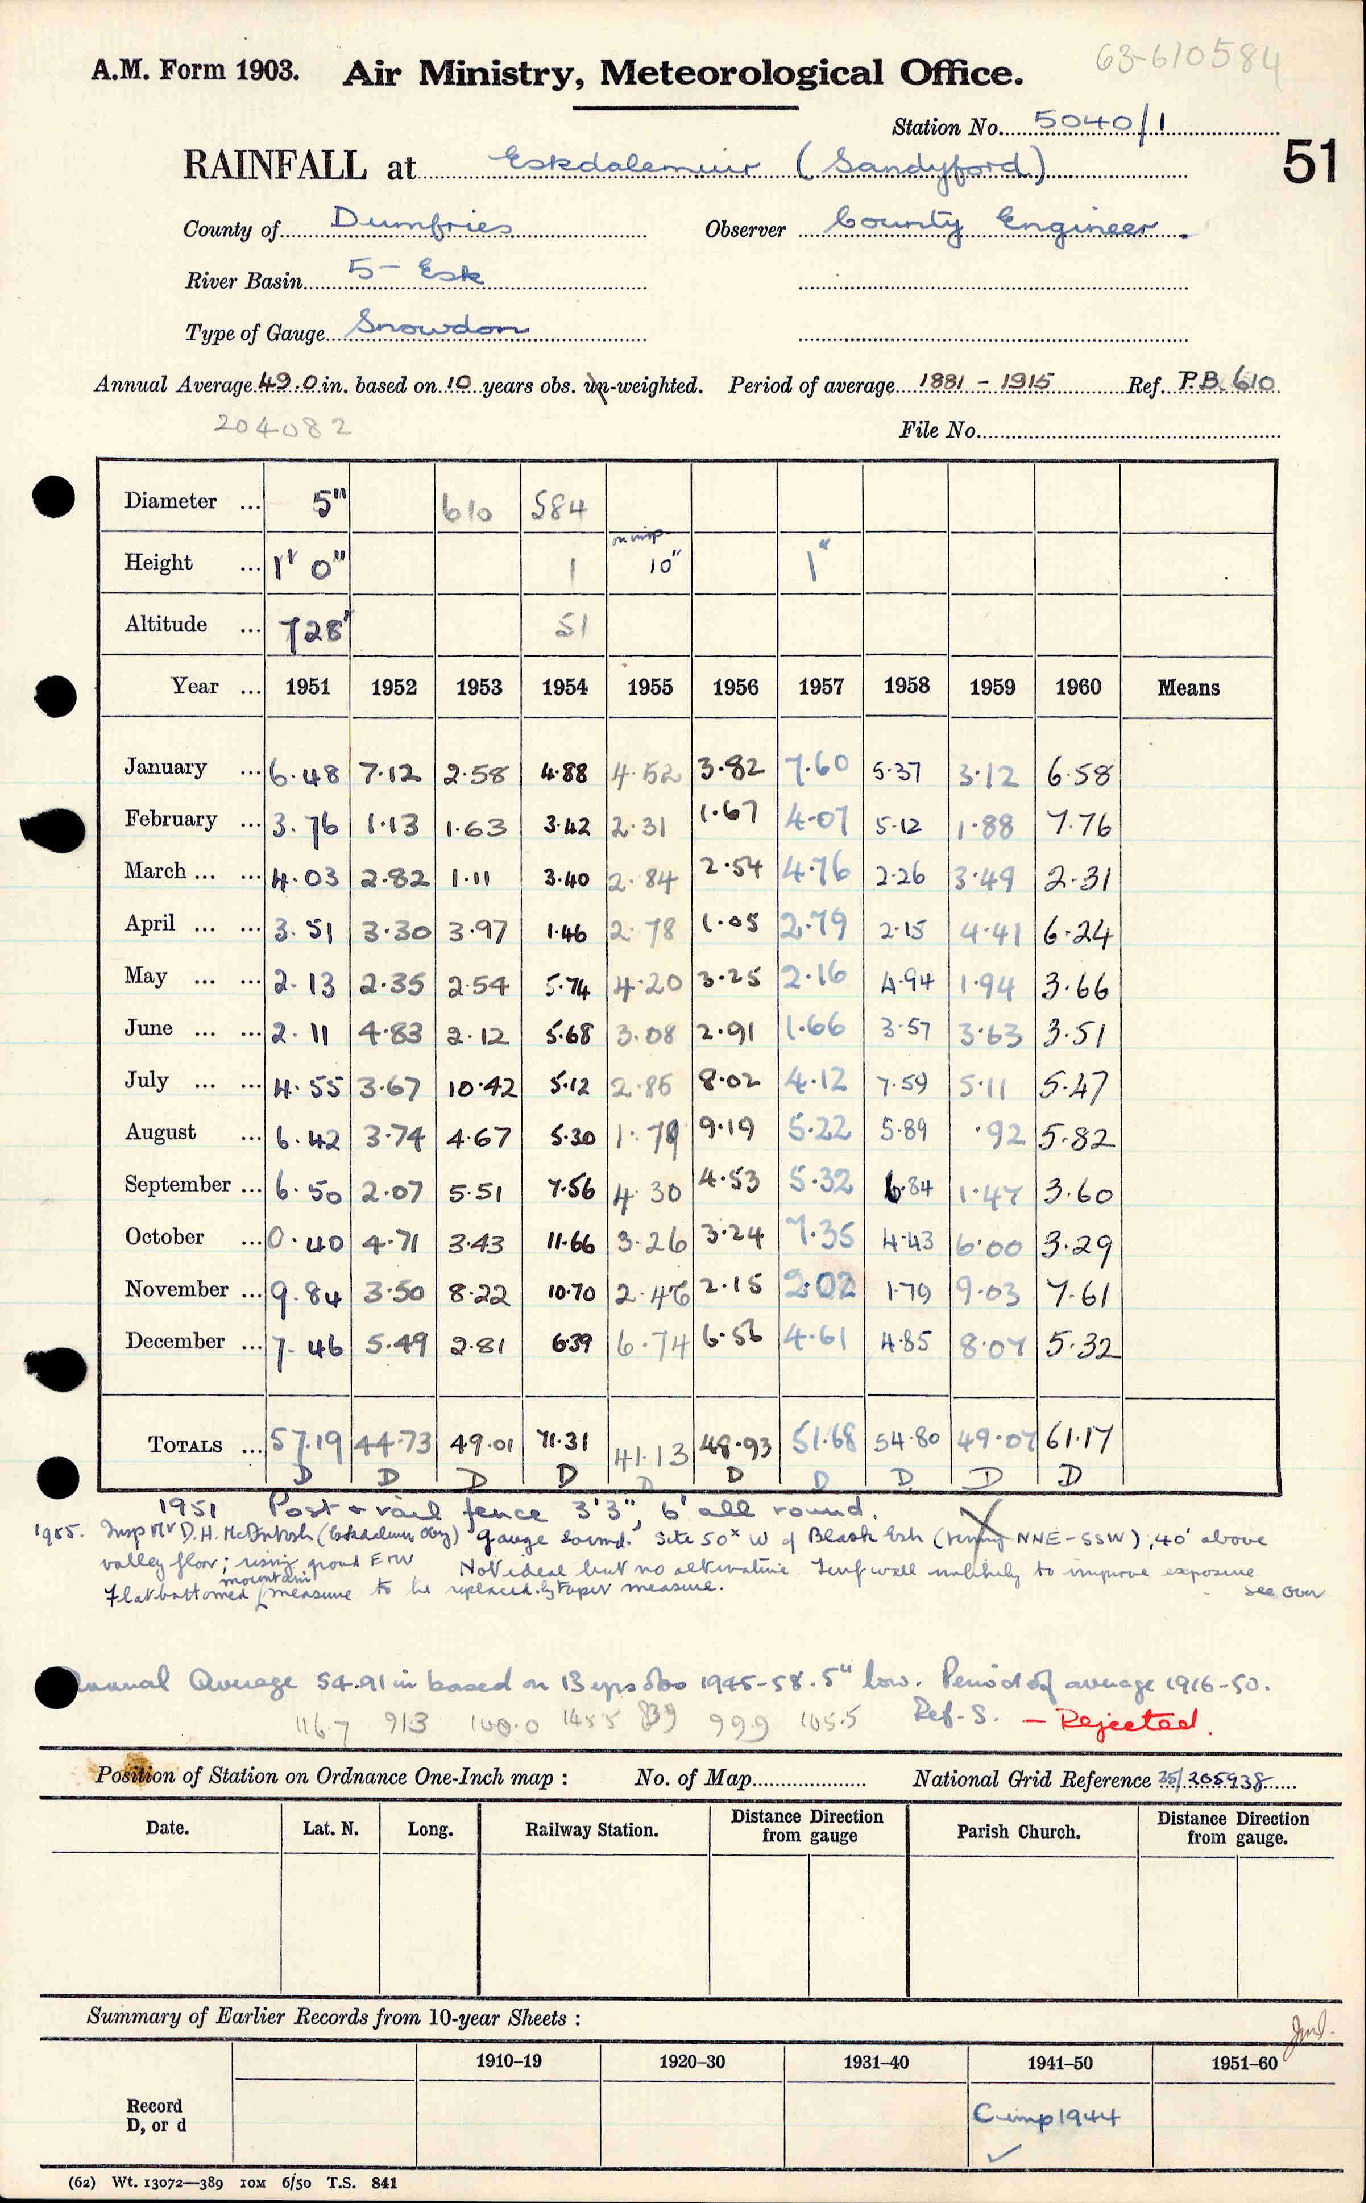 63-610584
A.M. Form 1903. Air Ministry, Meteorological Office.
Station No. 5040/1
51
RAINFALL at Eskdalemuir (Sandyford)
County of Dumfries Observer County Engineer.
River Basin 5- Esk
Type of Gauge Snowdon
Annual Average 49.0 in. based on 10 years obs. un-weighted. Period of average 1881 - 1915 Ref. P.B. 610
204082
File No.
Diameter ... 5" 610 584
on insp
Height ... 1' 0" 1 10" 1"
Altitude ... 728' 51
Year ... 1951 1952 1953 1954 1955 1956 1957 1958 1959 1960 Means
January ... 6.48 7.12 2.58 4.88 4.52 3.82 7.60 5.37 3.12 6.58
February ... 3.76 1.13 1.63 3.42 2.31 1.67 4.07 5.12 1.88 7.76
March ... ... 4.03 2.82 1.11 3.40 2.84 2.54 4.76 2.26 3.49 2.31
April ... ... 3.51 3.30 3.97 1.46 2.78 1.05 2.79 2.15 4.41 6.24
May ... ... 2.13 2.35 2.54 5.74 4.20 3.25 2.16 4.94 1.94 3.66
June ... ... 2.11 4.83 2.12 5.68 3.08 2.91 1.66 3.57 3.63 3.51
July ... ... 4.55 3.67 10.42 5.12 2.85 8.02 4.12 7.59 5.11 5.47
August ... 6.42 3.74 4.67 5.30 1.79 9.19 5.22 5.89 .92 5.82
September ... 6.50 2.07 5.51 7.56 4.30 4.53 5.32 6.84 1.47 3.60
October ... 0.40 4.71 3.43 11.66 3.26 3.24 7.35 4.43 6.00 3.29
November ... 9.84 3.50 8.22 10.70 2.46 2.15 2.02 1.79 9.03 7.61
December ... 7.46 5.49 2.81 6.39 6.74 6.56 4.61 4.85 8.07 5.32
TOTALS ... 57.19 44.73 49.01 71.31 41.13 48.93 51.68 54.80 49.07 61.17
D D D D D D D D D D
1951 Post & rail fence 3'3", 6' all round.
1955. Insp Mr D.H. McIntosh (Eskdalemuir Oby) gauge sound. Site 50x W of Black Esk (running NNE-SSW), 40' above
valley floor; rising ground E & W Not ideal but no alternative Turf wall unlikely to improve exposure
Flat bottomed mountain measure to be replaced by taper measure. see over
Annual Average 54.91 in based on 13 yrs obs 1945-58. 5" low. Period of average 1916-50.
116.7 91.3 100.0 145.5 839 99.9 105.5 Ref. S. - Rejected.
Position of Station on Ordnance One-Inch map : No. of Map National Grid Reference 25/205938
Date. Lat. N. Long. Railway Station. Distance from Direction gauge Parish Church. Distance from Direction gauge.
Summary of Earlier Records from 10-year Sheets :
1910–19 1920–30 1931–40 1941–50 1951–60
Record
D, or d
C imp 1944
✓
(62) Wt. 13072—389 10M 6/50 T.S. 841